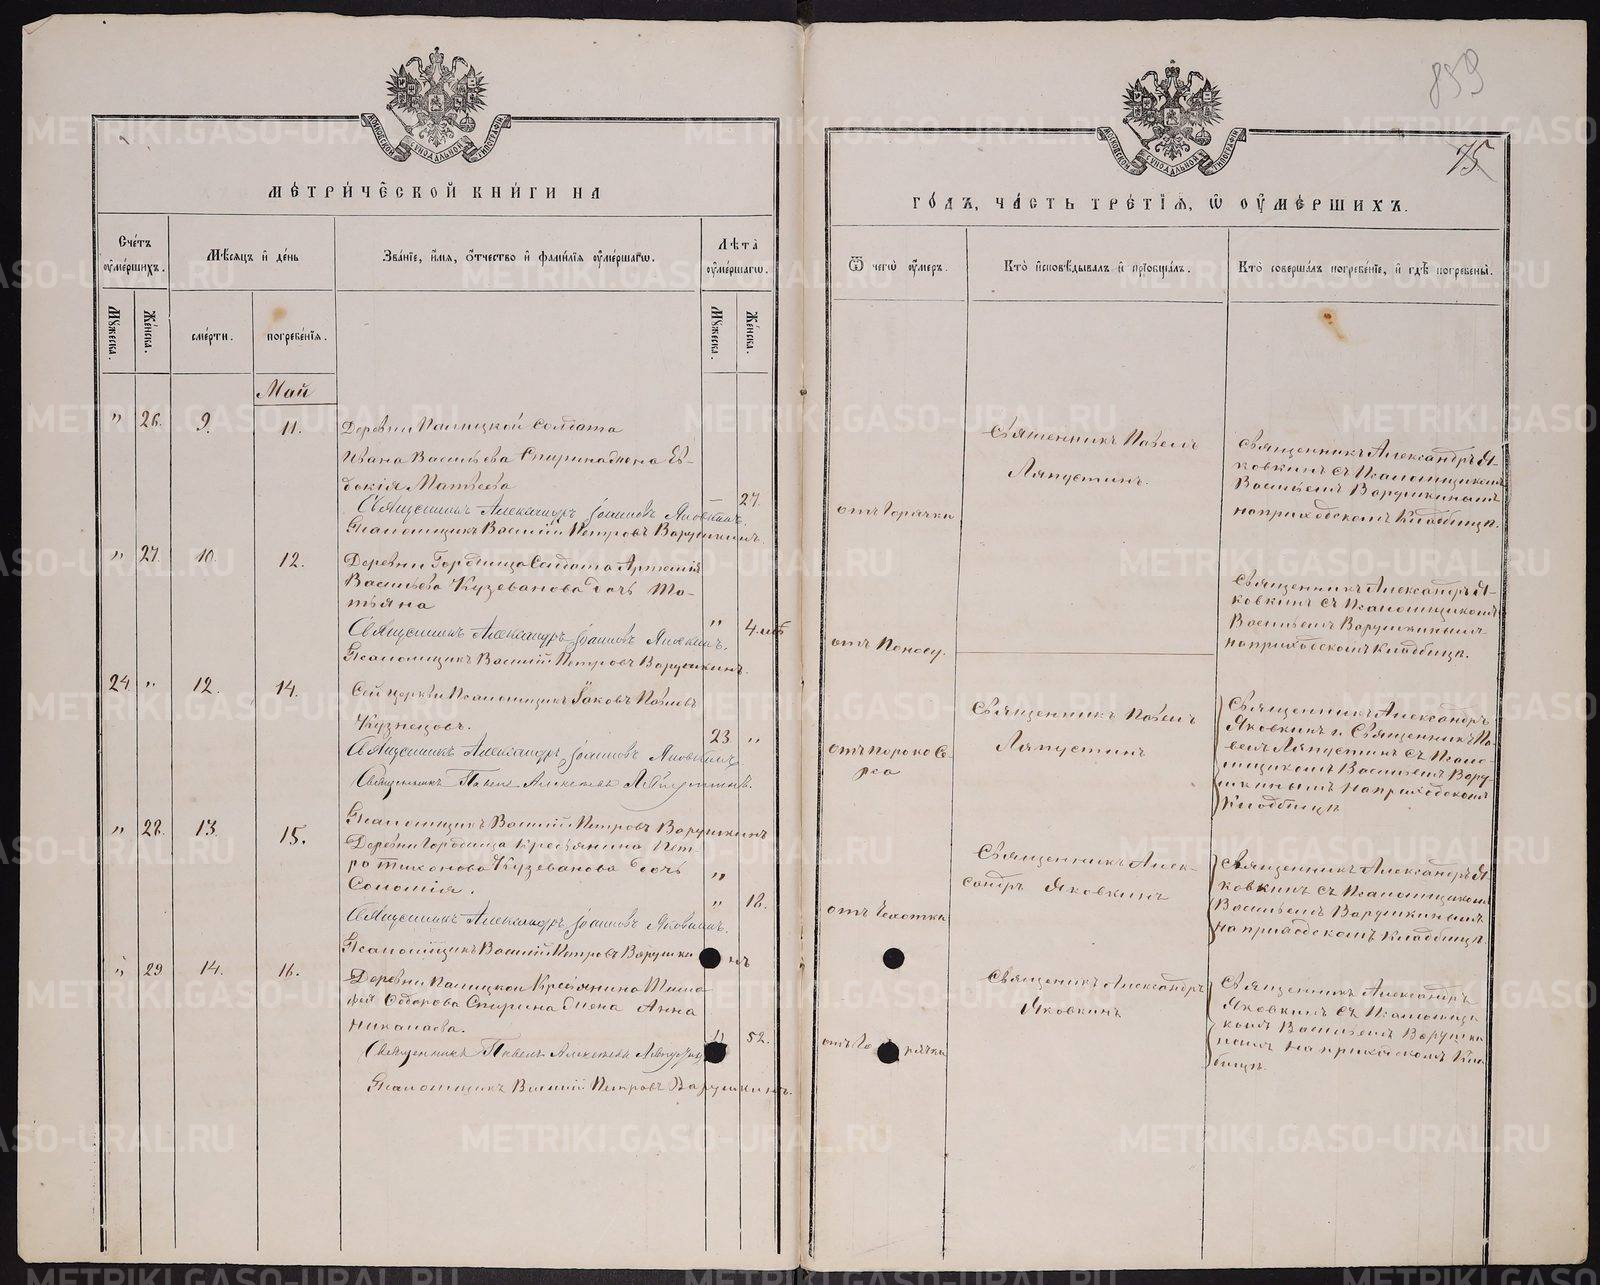 859
75
МЕТРИЧЕСКОЙ КНИГИ НА
ГОДЪ, ЧАСТЬ ТРЕТІЯ, Ѿ ОУМЕРШИХЪ.
МОСКОВСКОЙ СѴНОДАЛЬНОЙ ТИПОГРАФІИ
МОСКОВСКОЙ СѴНОДАЛЬНОЙ ТИПОГРАФІИ
Счетъ оумершихъ.
Мѣсяцъ и день
Званіе, имя, отчество и фамилія оумершагѡ.
Лѣта оумершагѡ.
Ѿ чегѡ оумеръ.
Кто исповѣдывалъ и пріобщалъ.
Кто совершалъ погребеніе, и гдѣ погребены.
Мужеска.
Женска.
смерти.
погребенія.
Мужеска.
Женска.
Май
" 26. 9. 11.
Деревни Палицкой Солдата
Ивана Васильева Спирина жена Ев-
докія Матвѣева
– 27.
Священникъ Александръ Іоанновъ Яковкинъ.
Псаломщикъ Василій Петровъ Варушкинъ.
отъ Горячки
Священникъ Павелъ
Ляпустинъ.
Священникъ Александръ Я-
ковкинъ съ Псаломщикомъ
Васильемъ Варушкинымъ
на приходскомъ Кладбищѣ.
" 27. 10. 12.
Деревни Гордѣища Солдата Артемія
Васильева Кузеванова дочь Та-
тьяна
" 4 лѣт
Священникъ Александръ Іоанновъ Яковкинъ.
Псаломщикъ Василій Петровъ Варушкинъ.
отъ Поносу.
Священникъ Александръ Я-
ковкинъ съ Псаломщикомъ
Васильемъ Варушкинымъ
на приходскомъ Кладбищѣ.
24 " 12. 14.
Сей церкви Псаломщикъ Іаковъ Павловъ
Кузнецовъ.
23 "
Священникъ Александръ Іоанновъ Яковкинъ.
Священникъ Павелъ Алексѣевъ Ляпустинъ.
Псаломщикъ Василій Петровъ Варушкинъ
отъ Порока Се-
рца
Священникъ Павелъ
Ляпустинъ
Священникъ Александръ
Яковкинъ и Священникъ Па-
велъ Ляпустинъ съ Псало-
мщикомъ Васильемъ Вару-
шкинымъ на приходскомъ
Кладбищѣ
" 28. 13. 15.
Деревни Гордѣища Крестьянина Пет-
ра Тихонова Кузеванова дочь
Соломія.
"
" 18.
Священникъ Александръ Іоанновъ Яковкинъ.
Псаломщикъ Василій Петровъ Варушкинъ
отъ Чахотки
Священникъ Алек-
сандръ Яковкинъ
Священникъ Александръ Я-
ковкинъ съ Псаломщикомъ
Васильемъ Варушкинымъ
на приходскомъ Кладбищѣ
" 29 14. 16.
Деревни Палицкой Крестьянина Тимо-
фея Ѳедорова Спирина жена Анна
Николаева.
" 52.
Священникъ Павелъ Алексѣевъ Ляпустинъ
Псаломщикъ Василій Петровъ Варушкинъ.
отъ Горячки
Священникъ Александръ
Яковкинъ
Священникъ Александръ
Яковкинъ съ Псаломщи-
комъ Васильемъ Варушки-
нымъ на приходскомъ Клад-
бищѣ.
METRIKI.GASO-URAL.RU